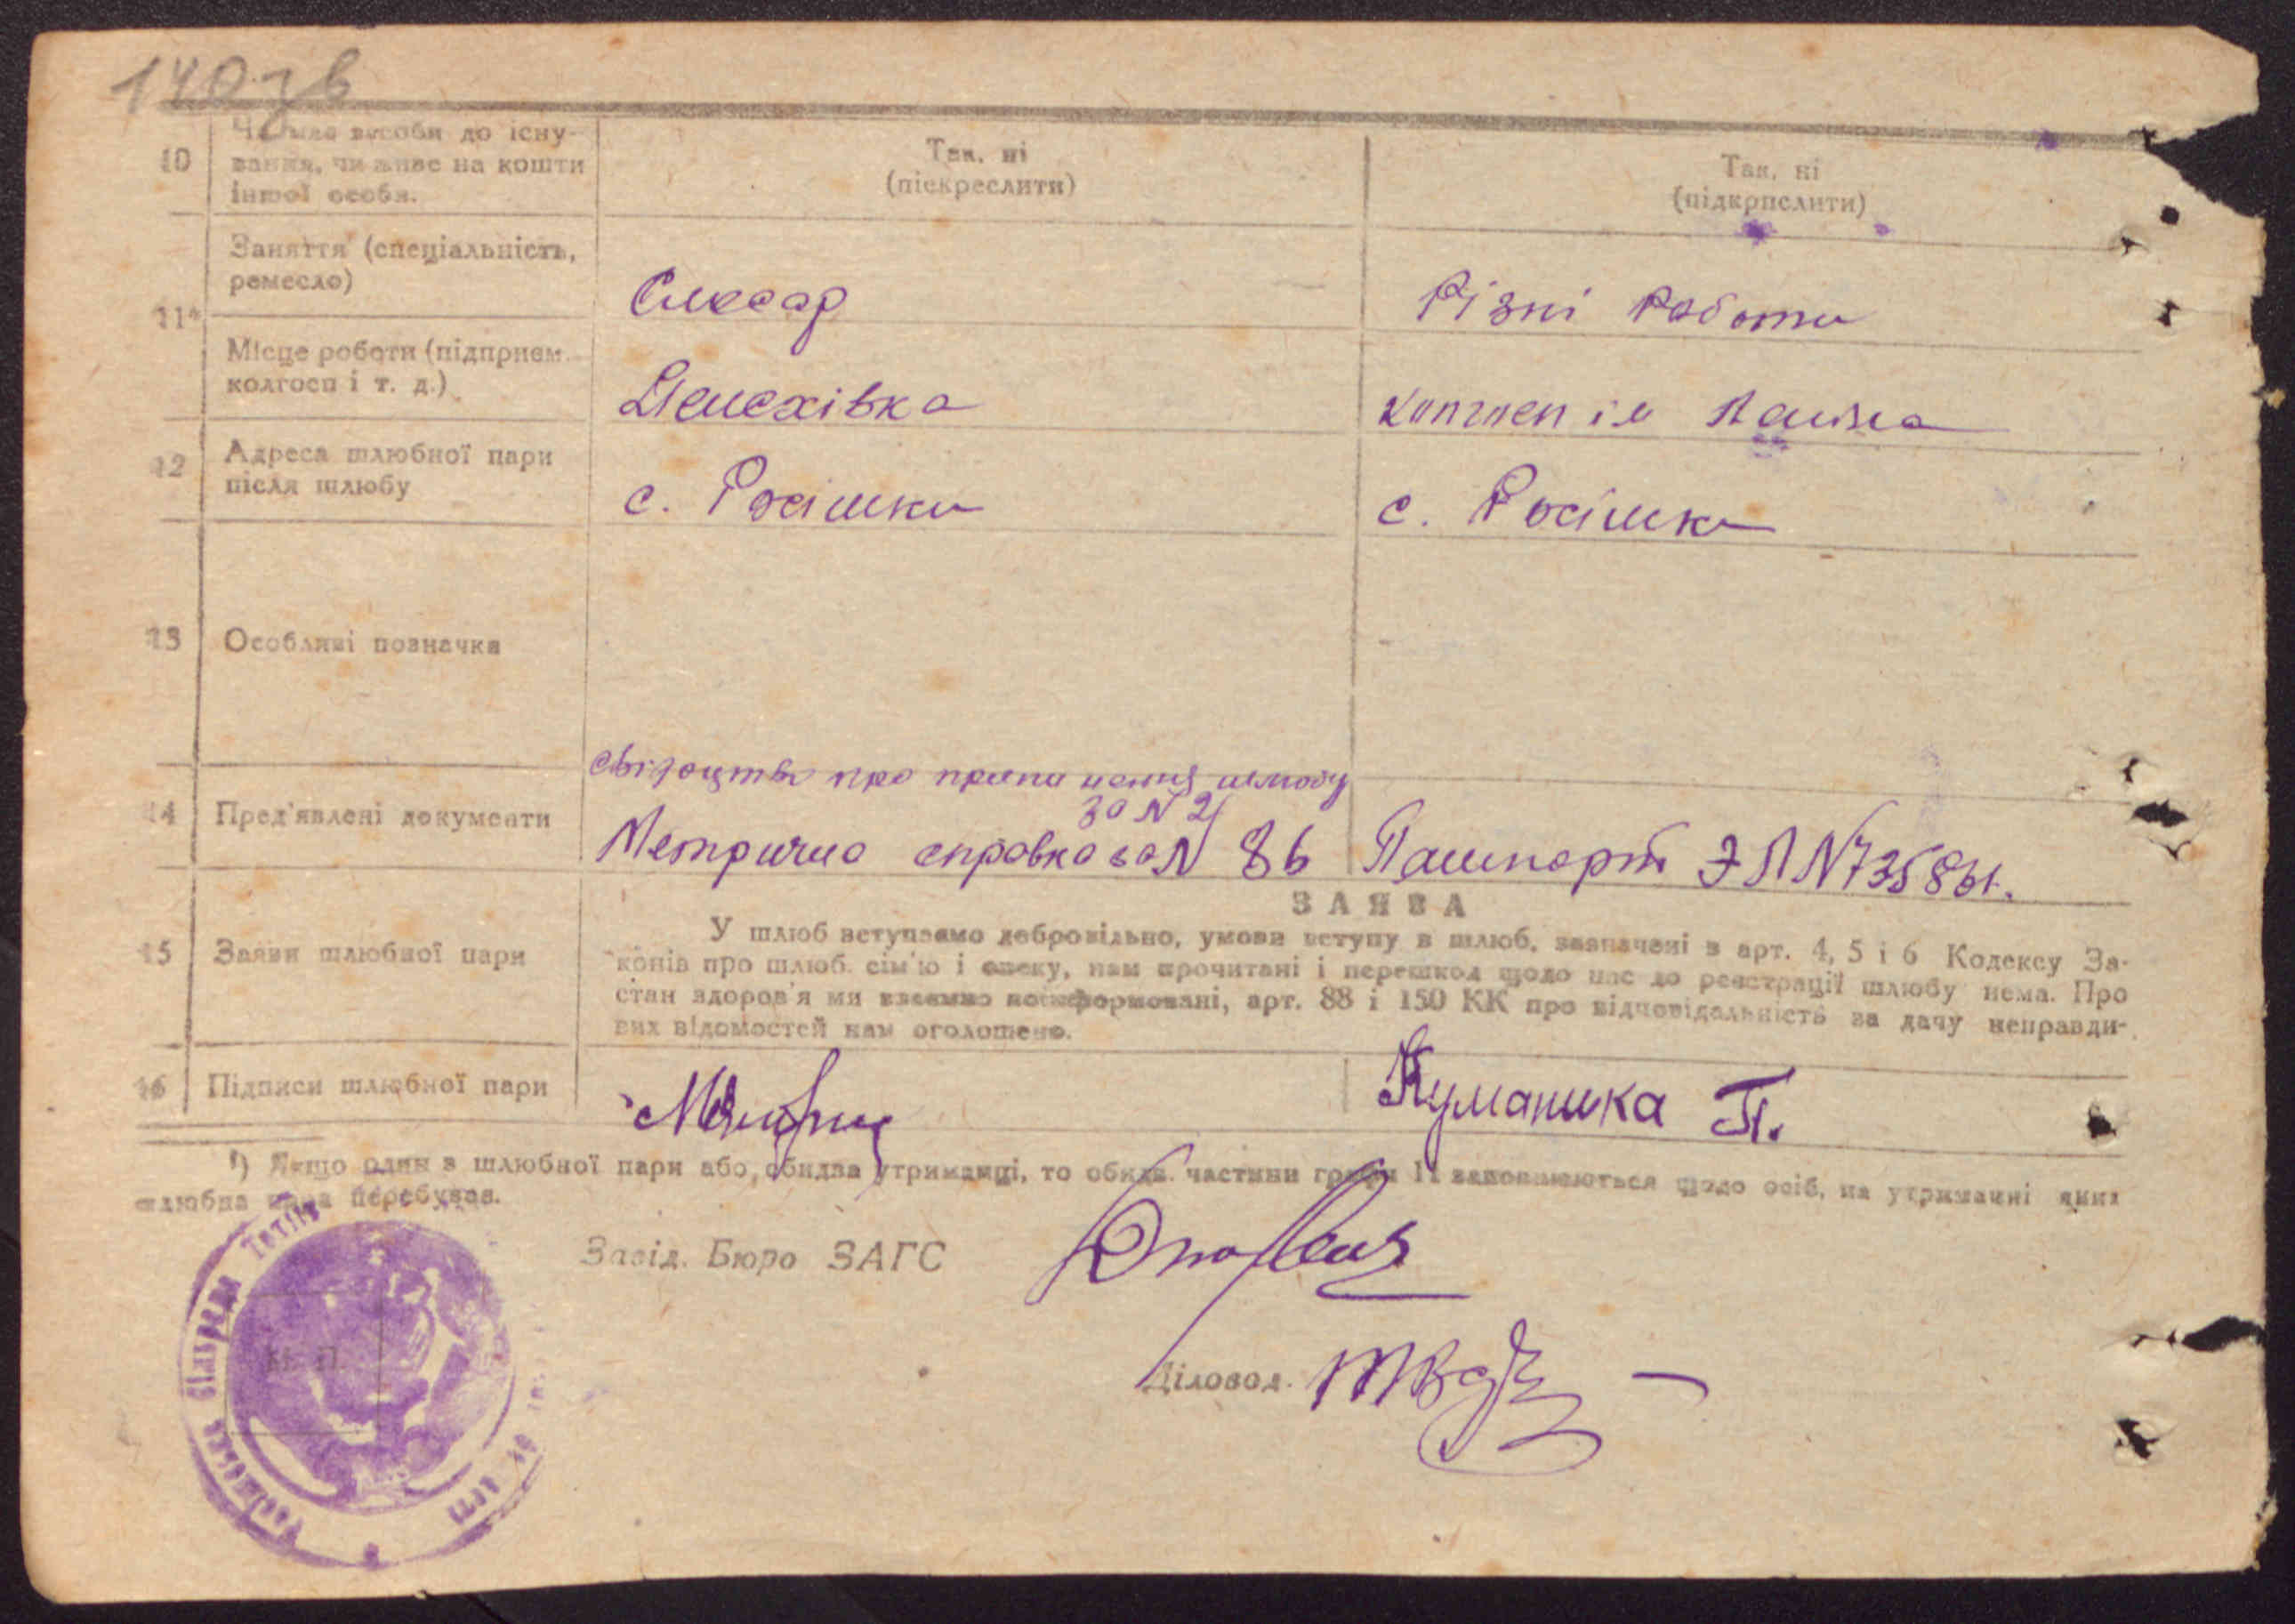 140 зв
10
Чи має засоби до існу-
вання, чи живе на кошти
іншої особи.
Так, ні
(підкреслити)
Так, ні
(підкрпслити)
11*
Заняття (спеціальність,
ремесло)
Слюсар
Різні роботи
Місце роботи (підприєм.
колгосп і т. д.)
12
Адреса шлюбної пари
після шлюбу
с. Росішки
с. Росішки
13
Особливі позначки
про шлюбу
за N 21
14
Пред'явлені документи
Метрична справка за N 86
Пашпорт ЭЛ N
ЗАЯВА
15
Заяви шлюбної пари
У шлюб вступаємо добровільно, умови вступу в шлюб, зазначені в арт. 4, 5 і 6 Кодексу За-
конів про шлюб. сім'ю і опеку, нам прочитані і перешкод щодо нас до реєстрації шлюбу нема. Про
стан здоров'я ми взаємно поінформовані, арт. 88 і 150 КК про відповідальність за дачу неправди-
вих відомостей нам оголошено.
16
Підписи шлюбної пари
Куманика П.
¹) Якщо один з шлюбної пари або обидва утриманці, то обидві частини графи 11 заповнюються щодо осіб, на утриманні яких
шлюбна пара перебуває.
Завід. Бюро ЗАГС
М. П.
Діловод.